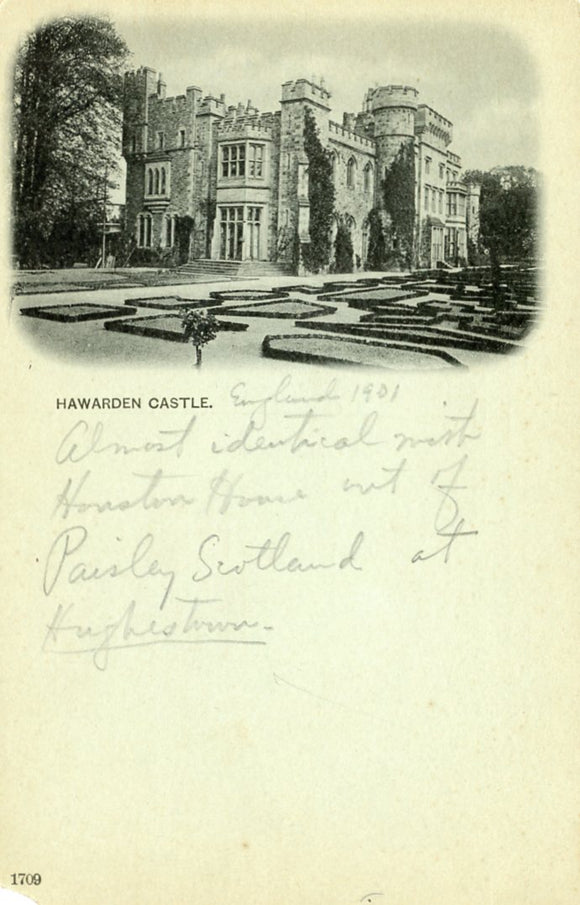 HAWARDEN CASTLE. England 1901
Almost identical with
Houston House out of
Paisley Scotland at
Hughestown.
1709